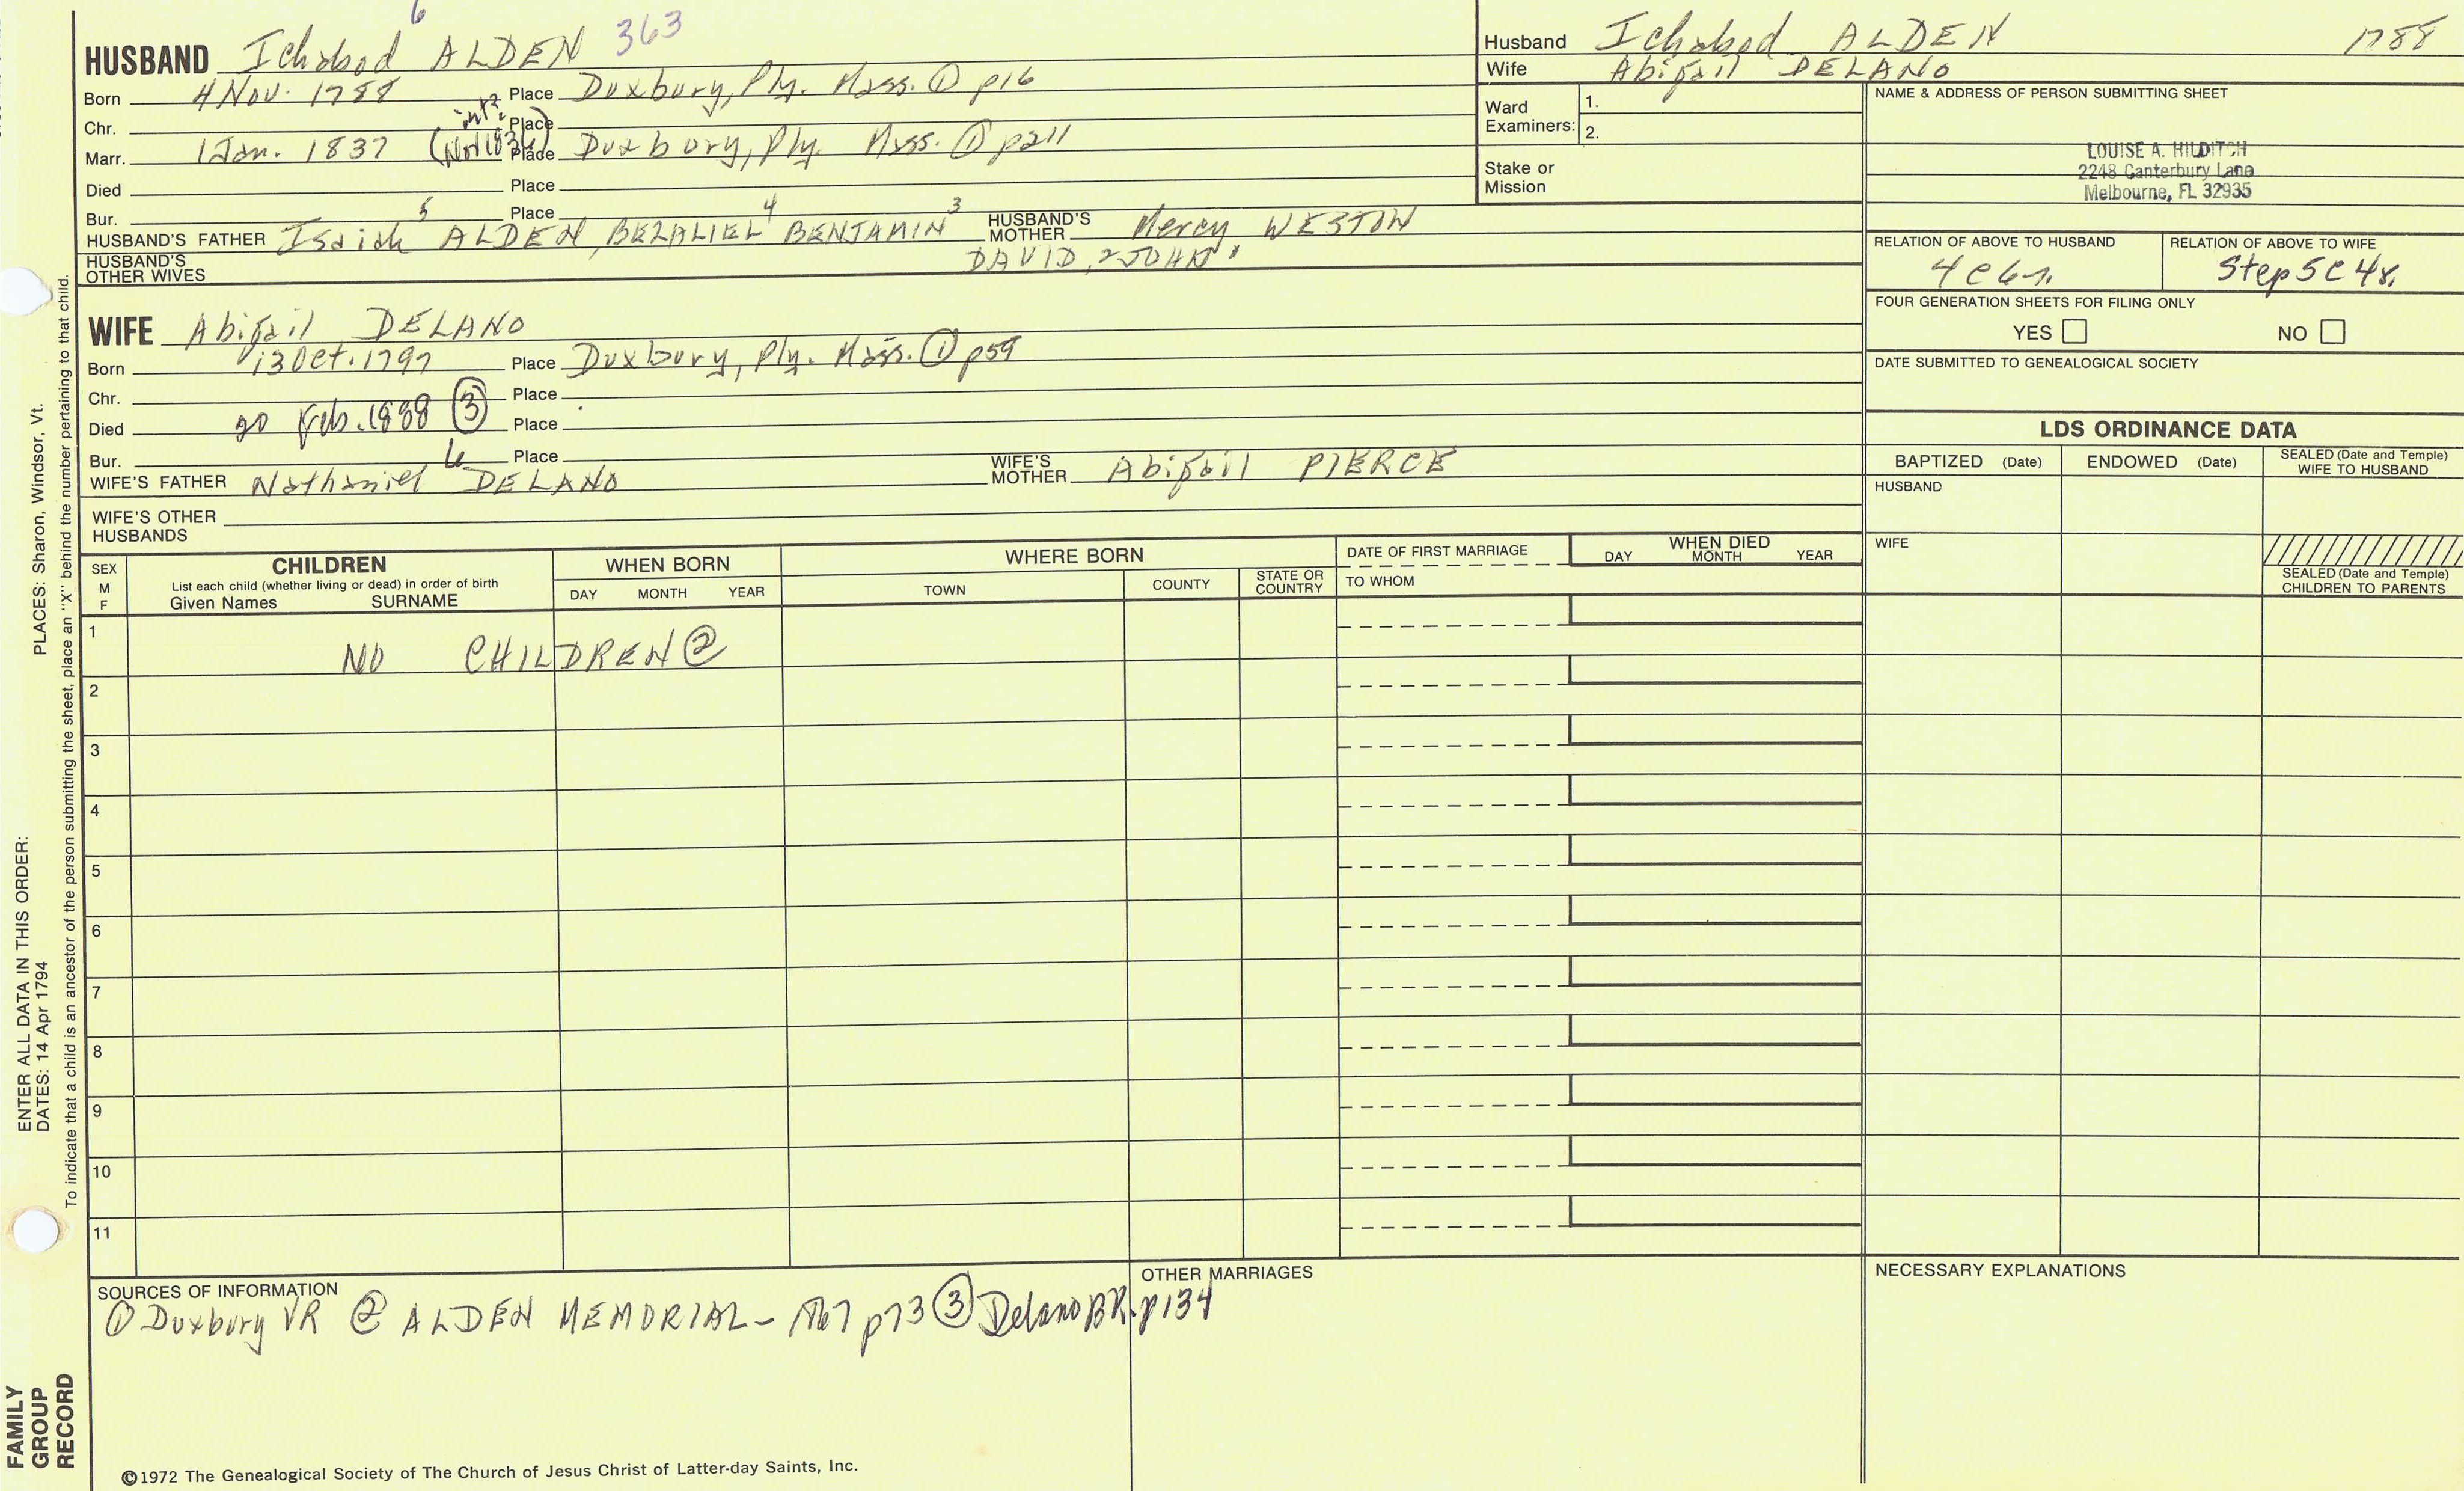 6
HUSBAND Ichabod ALDEN 363
Born 4 Nov. 1788 Place Duxbury, Ply. Mass. ① p16
Chr. Place
Marr. 1 Jan. 1837 (Nov 1836) Place Duxbury, Ply. Mass. ① p211
Died Place
Bur. Place
HUSBAND'S FATHER Isaiah 5 ALDEN, BEZALIEL 4 BENJAMIN 3 HUSBAND'S MOTHER Mercy WESTON
HUSBAND'S OTHER WIVES DAVID, 2 JOHN 1
WIFE Abigail DELANO
Born 13 Oct. 1797 Place Duxbury, Ply. Mass. ① p59
Chr. Place
Died 20 Feb. 1888 ③ Place
Bur. Place
WIFE'S FATHER Nathaniel 6 DELANO WIFE'S MOTHER Abigail PIERCE
WIFE'S OTHER HUSBANDS
Husband Ichabod ALDEN 1788
Wife Abigail DELANO
Ward Examiners: 1.
2.
Stake or Mission
NAME & ADDRESS OF PERSON SUBMITTING SHEET
LOUISE A. HILDITCH
2248 Canterbury Lane
Melbourne, FL 32935
RELATION OF ABOVE TO HUSBAND RELATION OF ABOVE TO WIFE
4C6r. Step5C4r.
FOUR GENERATION SHEETS FOR FILING ONLY
YES NO
DATE SUBMITTED TO GENEALOGICAL SOCIETY
LDS ORDINANCE DATA
BAPTIZED (Date) ENDOWED (Date) SEALED (Date and Temple) WIFE TO HUSBAND
HUSBAND
WIFE
SEALED (Date and Temple) CHILDREN TO PARENTS
SEX M F
CHILDREN
List each child (whether living or dead) in order of birth
Given Names SURNAME
WHEN BORN
DAY MONTH YEAR
WHERE BORN
TOWN COUNTY STATE OR COUNTRY
DATE OF FIRST MARRIAGE
TO WHOM
WHEN DIED
DAY MONTH YEAR
1 NO CHILDREN ②
2
3
4
5
6
7
8
9
10
11
SOURCES OF INFORMATION
① Duxbury VR ② ALDEN MEMORIAL- p73 ③ Delano BR. p134
OTHER MARRIAGES
NECESSARY EXPLANATIONS
©1972 The Genealogical Society of The Church of Jesus Christ of Latter-day Saints, Inc.
ENTER ALL DATA IN THIS ORDER:
DATES: 14 Apr 1794 PLACES: Sharon, Windsor, Vt.
To indicate that a child is an ancestor of the person submitting the sheet, place an "X" behind the number pertaining to that child.
FAMILY
GROUP
RECORD